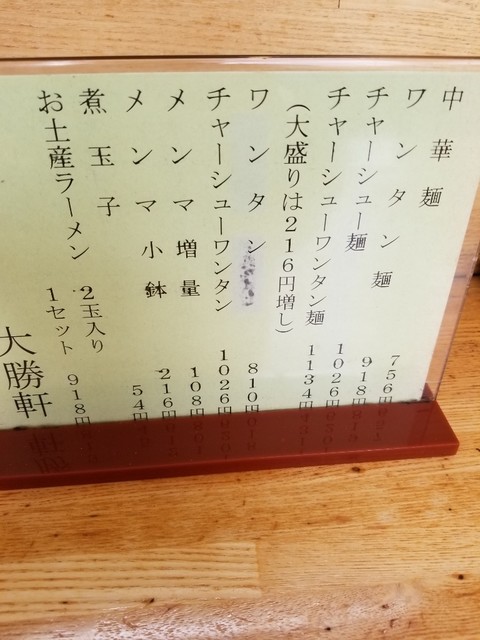 中華麺 756円
ワンタン麺 918円
チャーシュー麺 1026円
チャーシューワンタン麺 1134円
(大盛りは216円増し)
ワンタン 810円
チャーシューワンタン 1026円
メンマ増量 108円
メンマ小鉢 216円
煮玉子 54円
お土産ラーメン 2玉入り
1セット 918円
大勝軒